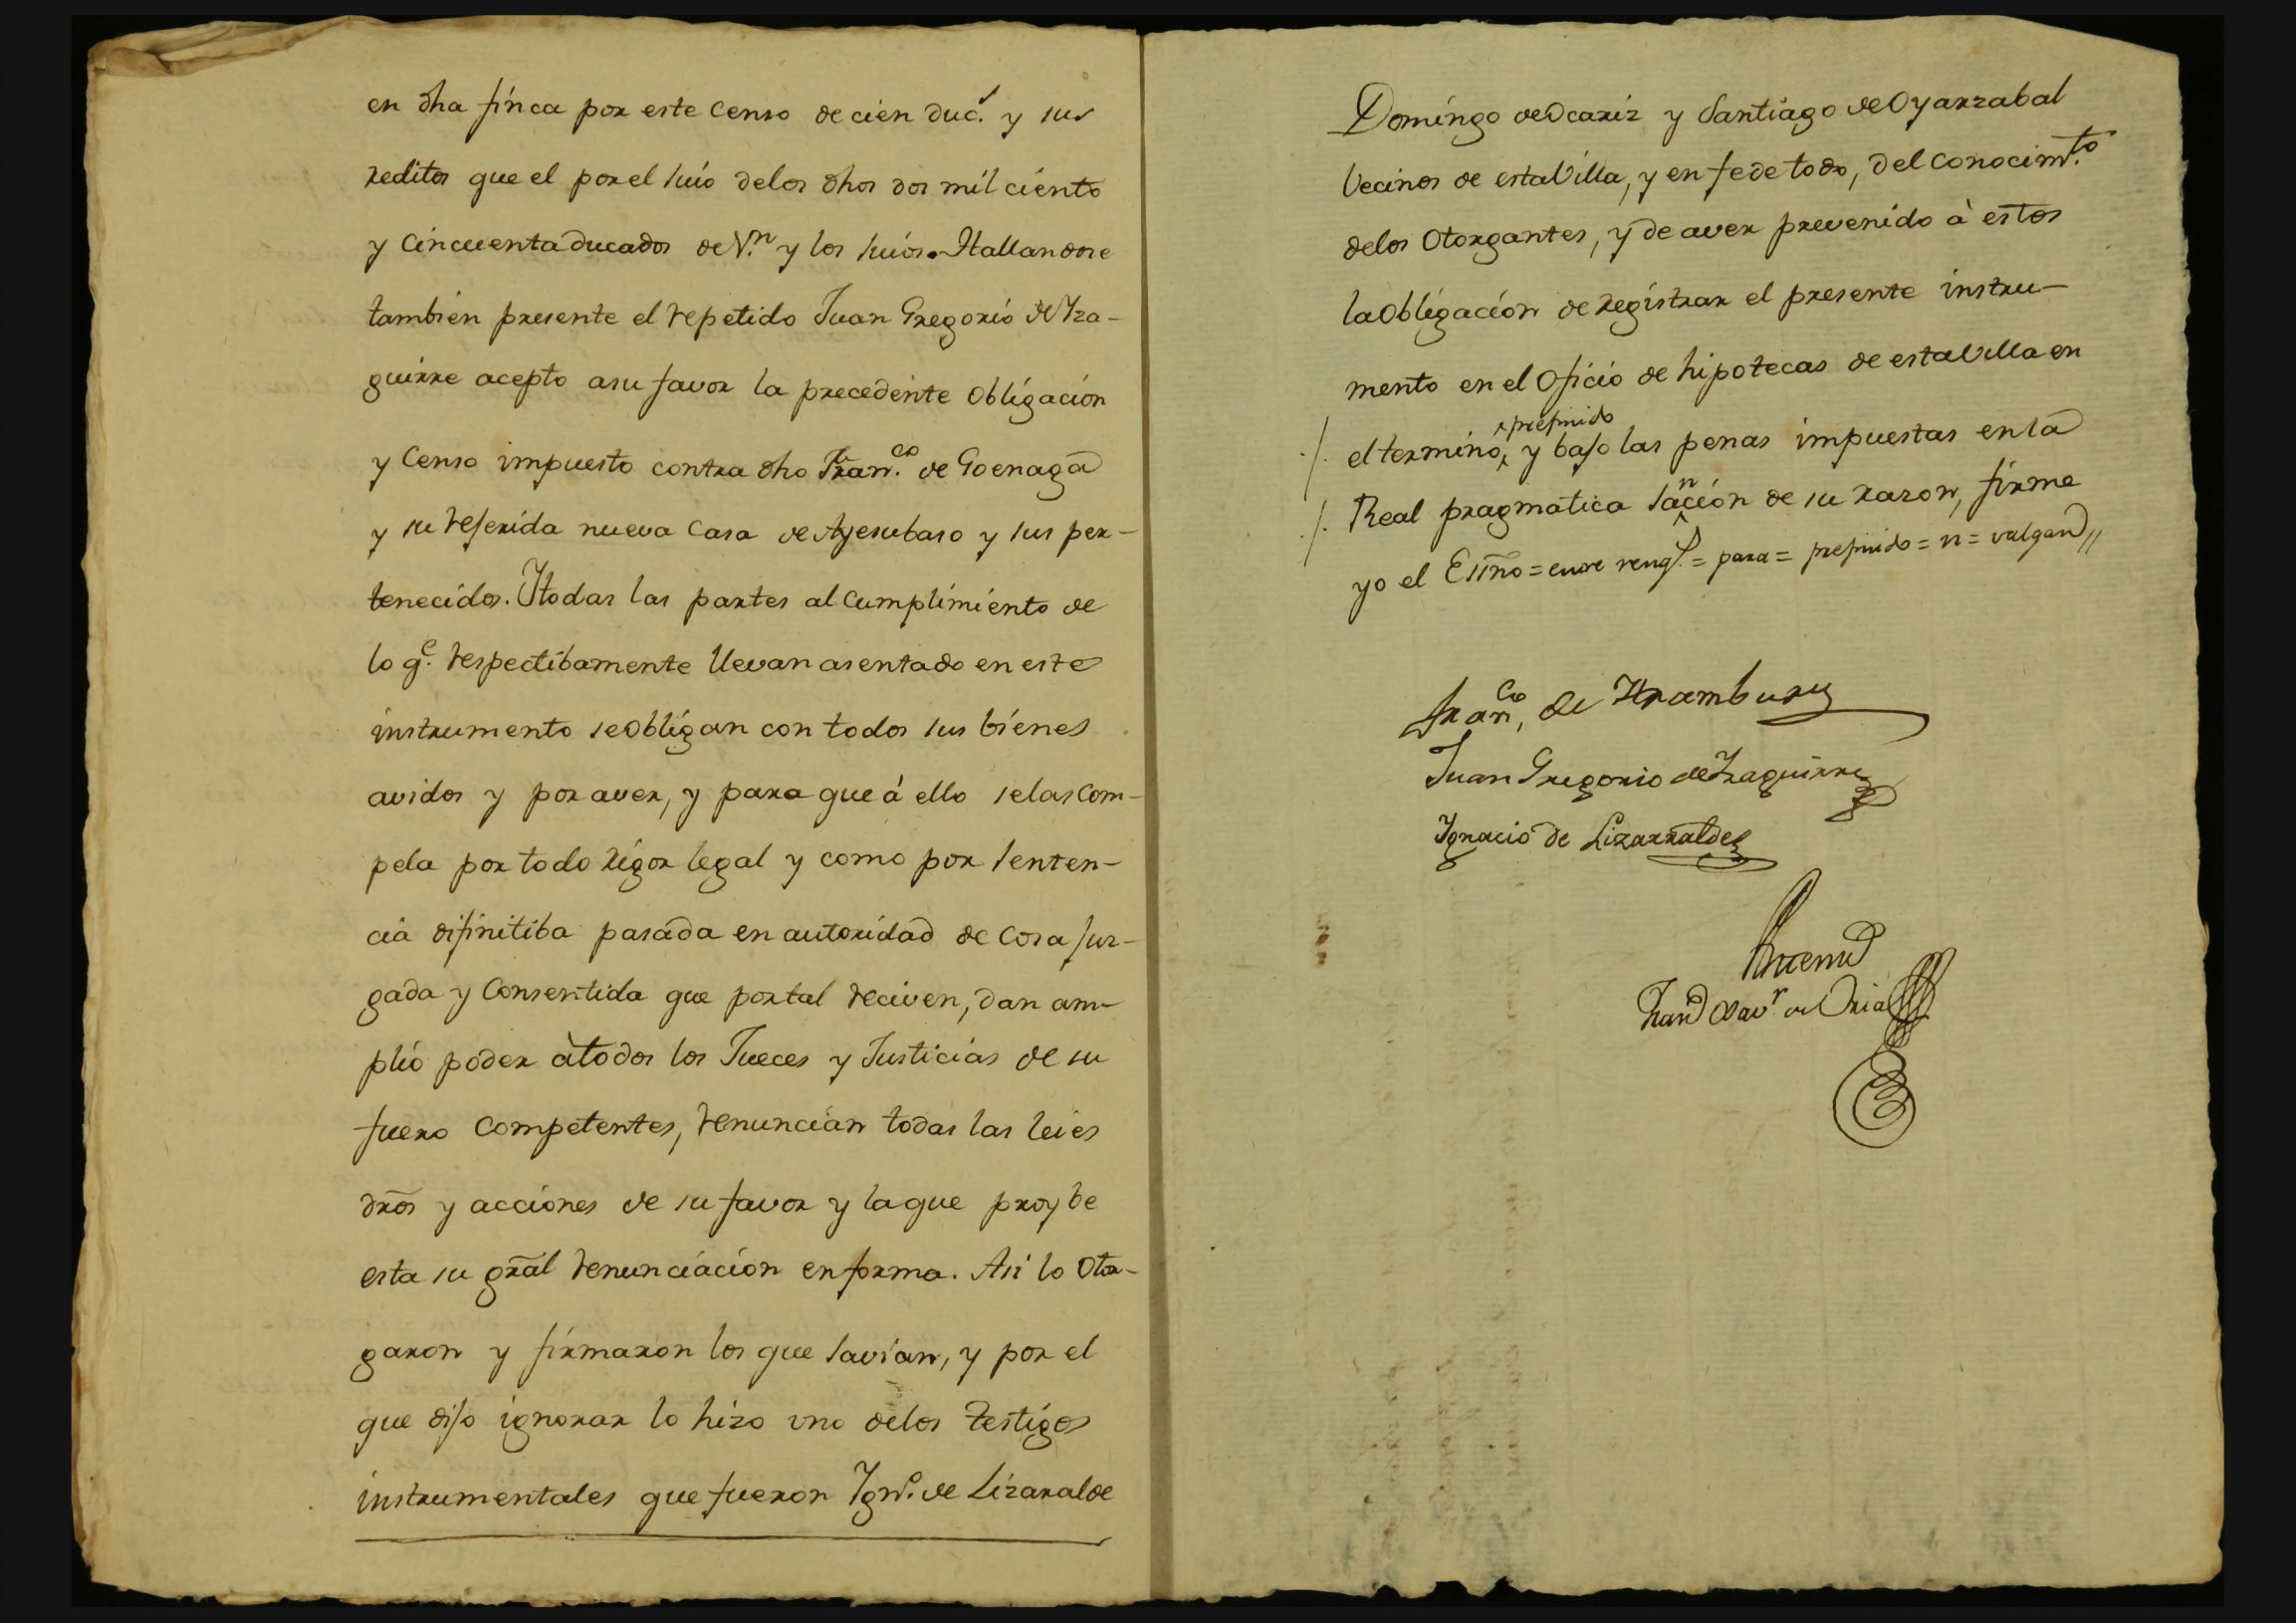 en dha finca por este Censo de cien duc.s y sus
reditos que el por el suio delos dhos dos mil ciento
y Cincuenta ducados de V.n y los suios. Hallandose
tambien presente el repetido Juan Gregorio de Yza-
guirre acepto asu favor la precedente Obligacion
y Censo impuesto contra dho Fran.co de Goenaga
y su referida nueva Casa de Ayesubaso y sus per-
tenecidos. Y todas las partes al Cumplimiento de
lo q.e respectibamente llevan asentado en este
instrumento se obligan con todos sus bienes
avidos y por aver, y para que á ello se las Com-
pela por todo rigor legal y como por senten-
cia difinitiba pasada en autoridad de Cosa juz-
gada y Consentida que por tal reciven, dan am-
plio poder à todos los Jueces y Justicias de su
fuero Competentes, renuncian todas las leies
dros y acciones de su favor y la que proybe
esta su gral renunciacion en forma. Asi lo Otor-
garon y firmaron los que savian, y por el
que dijo ignorar lo hizo uno delos testigos
instrumentales que fueron Ign.o de Lizaralde
Domingo de Ocariz y Santiago de Oyarzabal
Vecinos de esta Villa, y en fe de todo, del Conocim.to
delos Otorgantes, y de aver prevenido à estos
la Obligacion de registrar el presente instru-
mento en el Oficio de hipotecas de esta Villa en
prefinido
./. el termino, y bajo las penas impuestas en la
n
./. Real pragmatica sacion de su razon, firme
yo el Essño = entre reng.s = para = prefinido = n = valgan //
Fran.co de Aramburu
Juan Gregorio de Yzaguirre
Ygnacio de Lizarralde
Antemi
Fran.co Xav.r de Oria